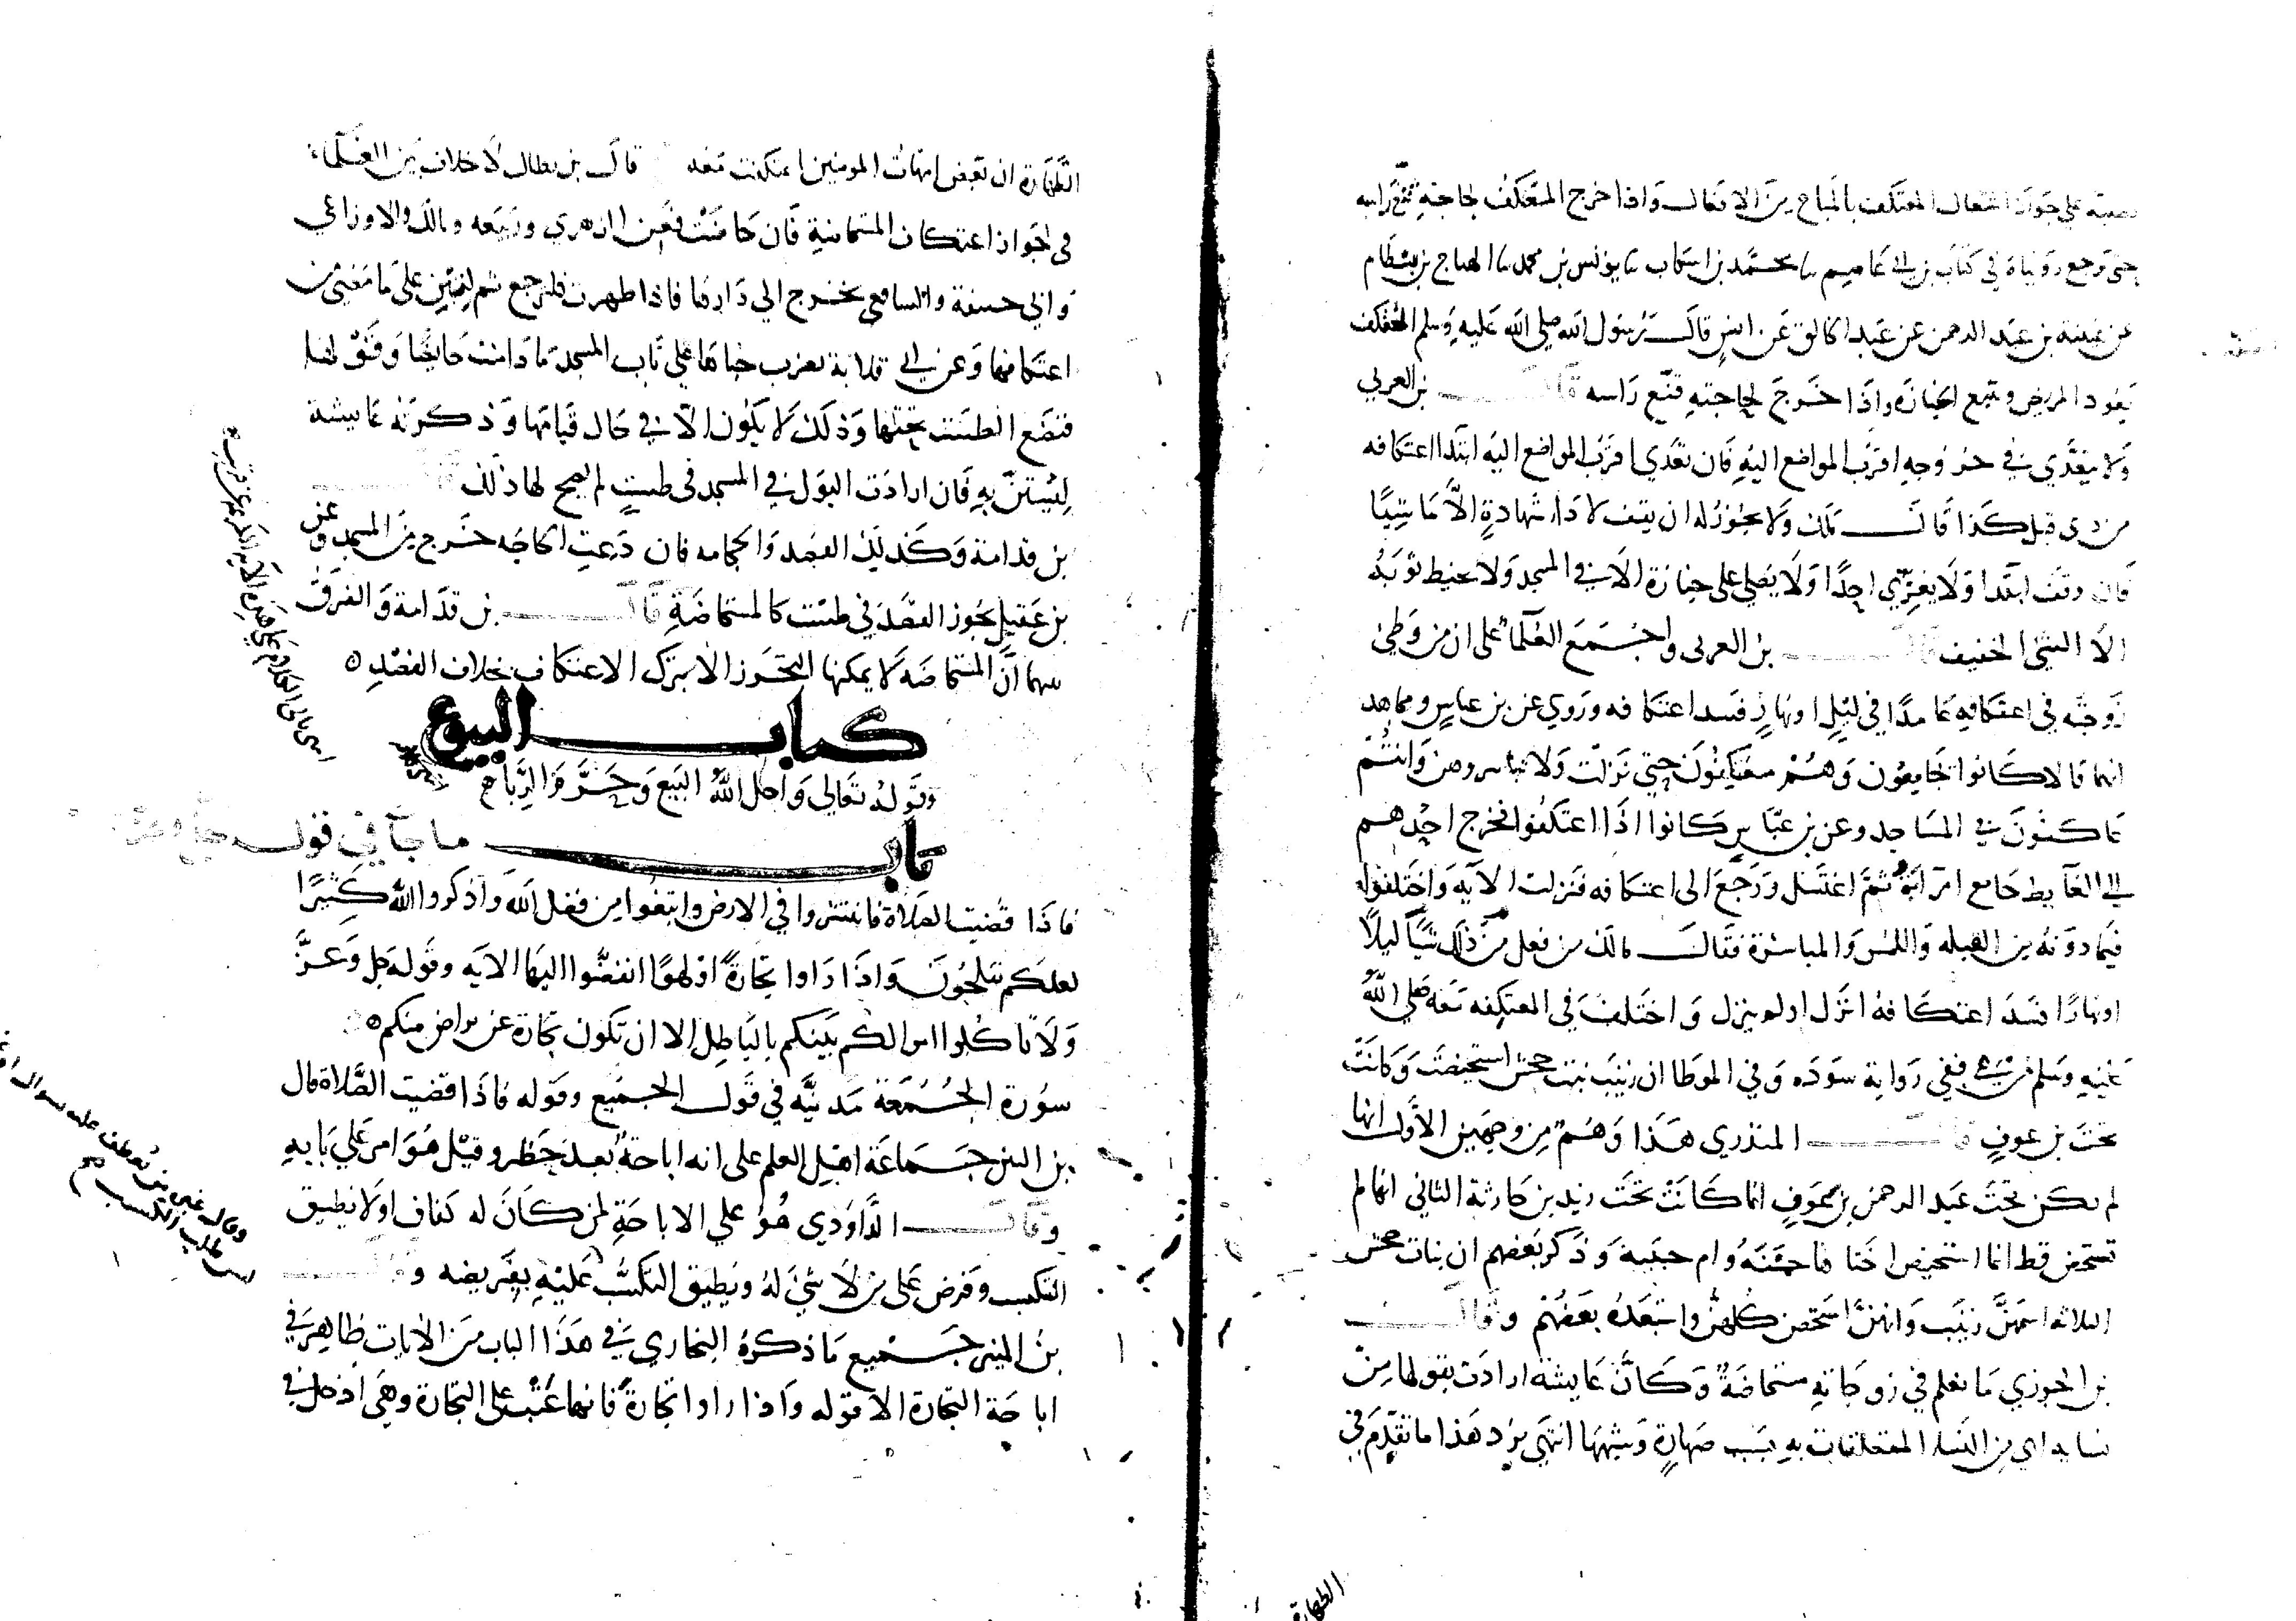 صفية على جواز اشتغال المعتكف بالمباح من الافعال واذا خرج المعتكف لحاجة قنع راسه
حتى يرجع روينا في كتاب بن ابي عاصم محمد بن اسحاب يونس بن محمد الهياج بن بسطام
عن عنبسة بن عبد الرحمن عن عبد الخالق عن انس قال رسول الله صلى الله عليه وسلم المعتكف
يعود المريض ويتبع الجنازة واذا خرج لحاجته قنع راسه قال بن العربي
ولا يتعدي في خروجه اقرب المواضع اليه فان تعدي اقرب المواضع اليه ابتدا اعتكافه
من ذي قبل كذا قال ملك ولا يجوز له ان يقف لاداء شهادة الا ماشيا
فان وقف ابتدا ولا يعزي احدا ولا يصلي على جنازة الا في المسجد ولا يخيط ثوبه
الا الشي الخفيف قال بن العربي واجمع العلماء على ان من وطئ
زوجته في اعتكافه عامدا في ليل او نهار فسد اعتكافه وروي عن بن عباس ومجاهد
انهما قالا كانوا يجامعون وهم معتكفون حتى نزلت ولا تباشروهن وانتم
عاكفون في المساجد وعن بن عباس كانوا اذا اعتكفوا فخرج احدهم
الى الغايط جامع امراته ثم اغتسل ورجع الى اعتكافه فنزلت الاية واختلفوا
فيما دونه من القبلة واللمس والمباشرة فقال مالك من فعل من ذلك شيا ليلا
او نهارا فسد اعتكافه انزل او لم ينزل واختلف في المعتكفه معه صلى الله
عليه وسلم من هي ففي رواية سوده وفي الموطا ان زينب بنت جحش استحيضت وكانت
تحت بن عوف قال المنذري هذا وهم من وجهين الاول انها
لم تكن تحت عبد الرحمن بن عوف انما كانت تحت زيد بن حارثة الثاني انها لم
تستحض قط انما استحيض اختاها حمنة وام حبيبة وذكر بعضهم ان بنات جحش
الثلاثة اسمهن زينب وانهن استحضن كلهن واستبعده بعضهم وقال
بن الجوزي ما نعلم في زوجاته مستحاضة وكان عايشة ارادت بقولها من
نسايه اي من النساء المتعلقات به بسبب صهارة وشبهها انتهى يرد هذا ما تقدم في
الطهارة
الطهارة ان بعض امهات المومنين اعتكفت معه قال بن بطال لا خلاف بين العلماء
في جواز اعتكاف المستحاضة فان حاضت فعن الزهري وربيعه ومالك والاوزاعي
وابي حنيفة والشافعي تخرج الى دارها فاذا طهرت فلترجع ثم لتبن على ما مضى من
اعتكافها وعن ابي قلابة تضرب خباها على باب المسجد ما دامت حايضا وقوله لها
فتضع الطست تحتها وذلك لا يكون الا في حال قيامها وذكرته عايشة
ليستن به فان ارادت البول في المسجد في طست لم يصح لها ذلك قال
بن قدامة وكذلك الفصد والحجامه فان دعت الحاجه خرج من المسجد وعن
بن عقيل يجوز الفصد في طست كالمستحاضة قال بن قدامة والفرق
بينهما ان المستحاضه لا يمكنها التحرز الا بترك الاعتكاف بخلاف الفصد
كتاب البيوع
وقوله تعالى واحل الله البيع وحرم الربا
باب ما جآ في قول الله عز وجل
فاذا قضيت الصلاة فانتشروا في الارض وابتغوا من فضل الله واذكروا الله كثيرا
لعلكم تفلحون واذا راوا تجارة او لهوا انفضوا اليها الاية وقوله جل وعز
ولا تاكلوا اموالكم بينكم بالباطل الا ان تكون تجارة عن تراض منكم
سورة الجمعة مدنية في قول الجميع وقوله فاذا قضيت الصلاة قال
بن التين جماعة اهل العلم على انه اباحة بعد حظر وقيل هو امر على بابه
وقال الداودي هو على الاباحة لمن كان له كفاف او لا يطيق
التكسب وفرض على من لا شي له ويطيق التكسب عليه بفريضه وقال
بن المنير جميع ما ذكره البخاري في هذا الباب من الايات ظاهر في
اباحة التجارة الا قوله واذا راوا تجارة فانها عتب على التجارة وهي ادخل في
وقال غيره من يعطف عليه سوال